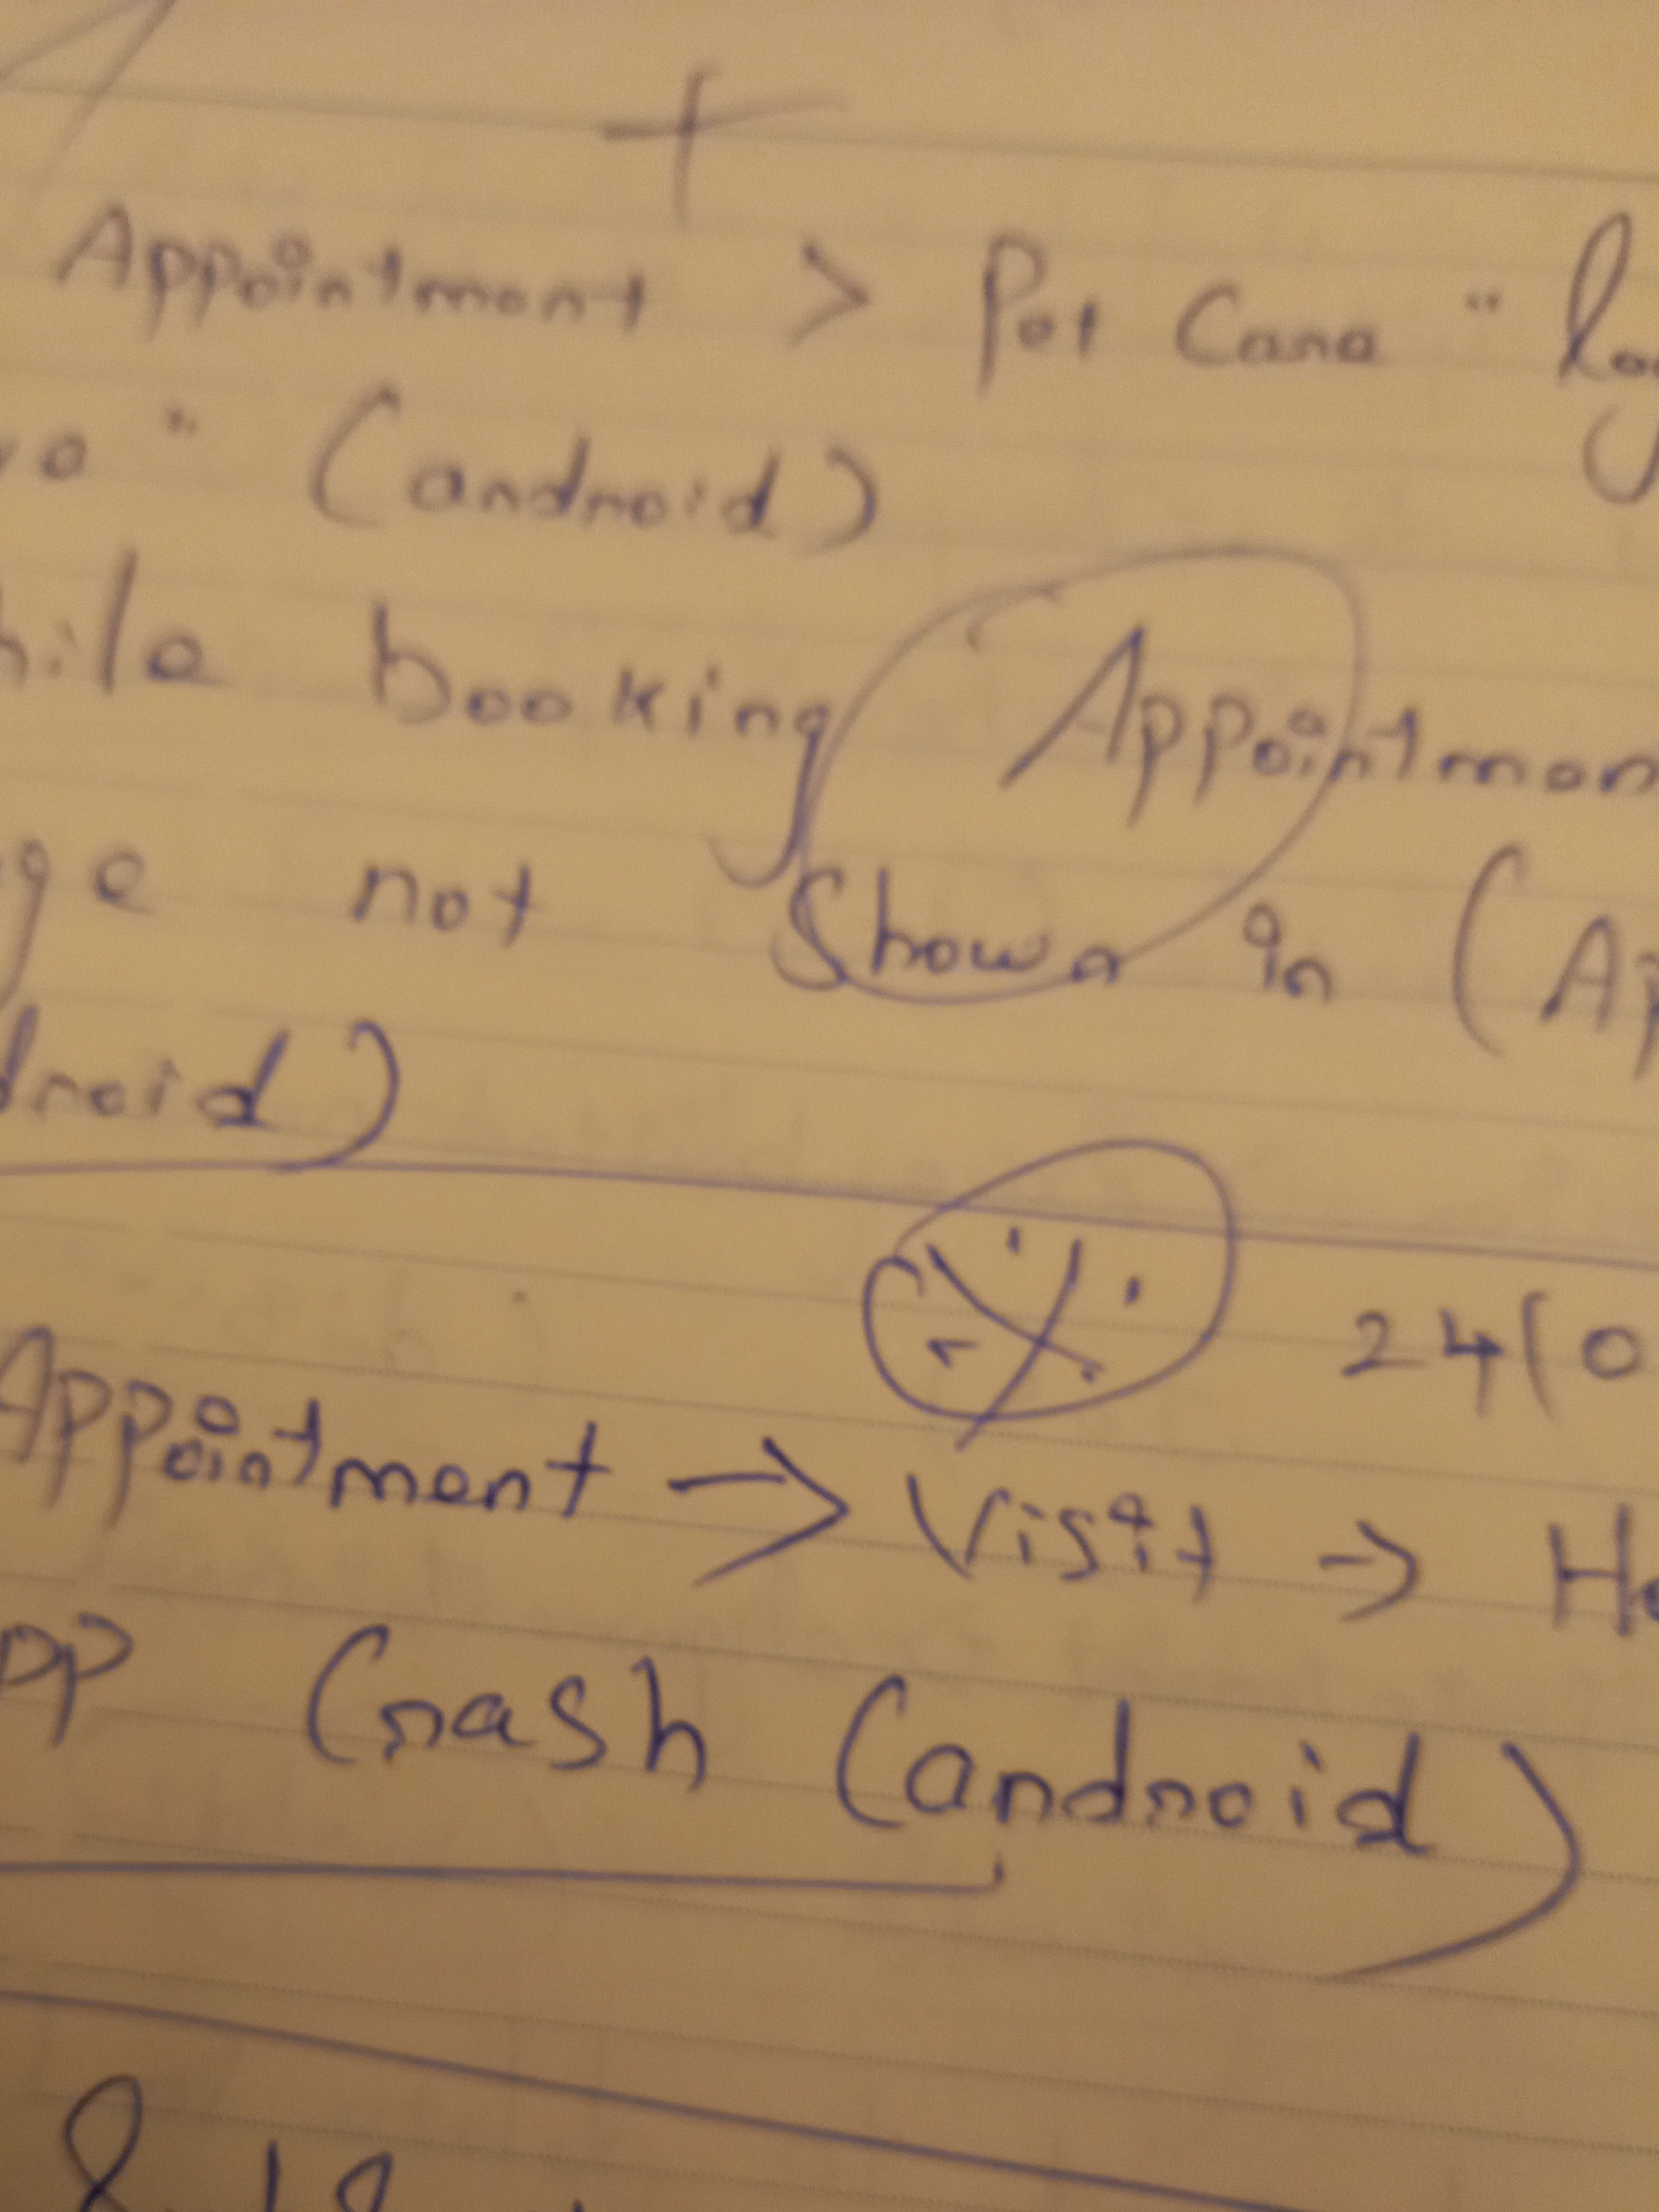 +
Appointment > Pet Care "
" (android)
hile booking Appointmen
ge not Shown in (Ap
droid)
24/0
Appointment → Visit → Ho
pp Crash (android)